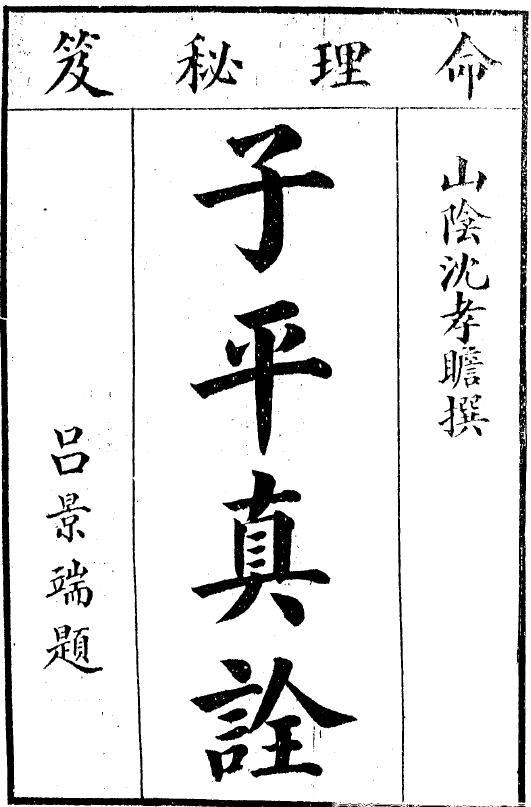 命理秘笈
山陰沈孝瞻撰
子平真詮
呂景端題